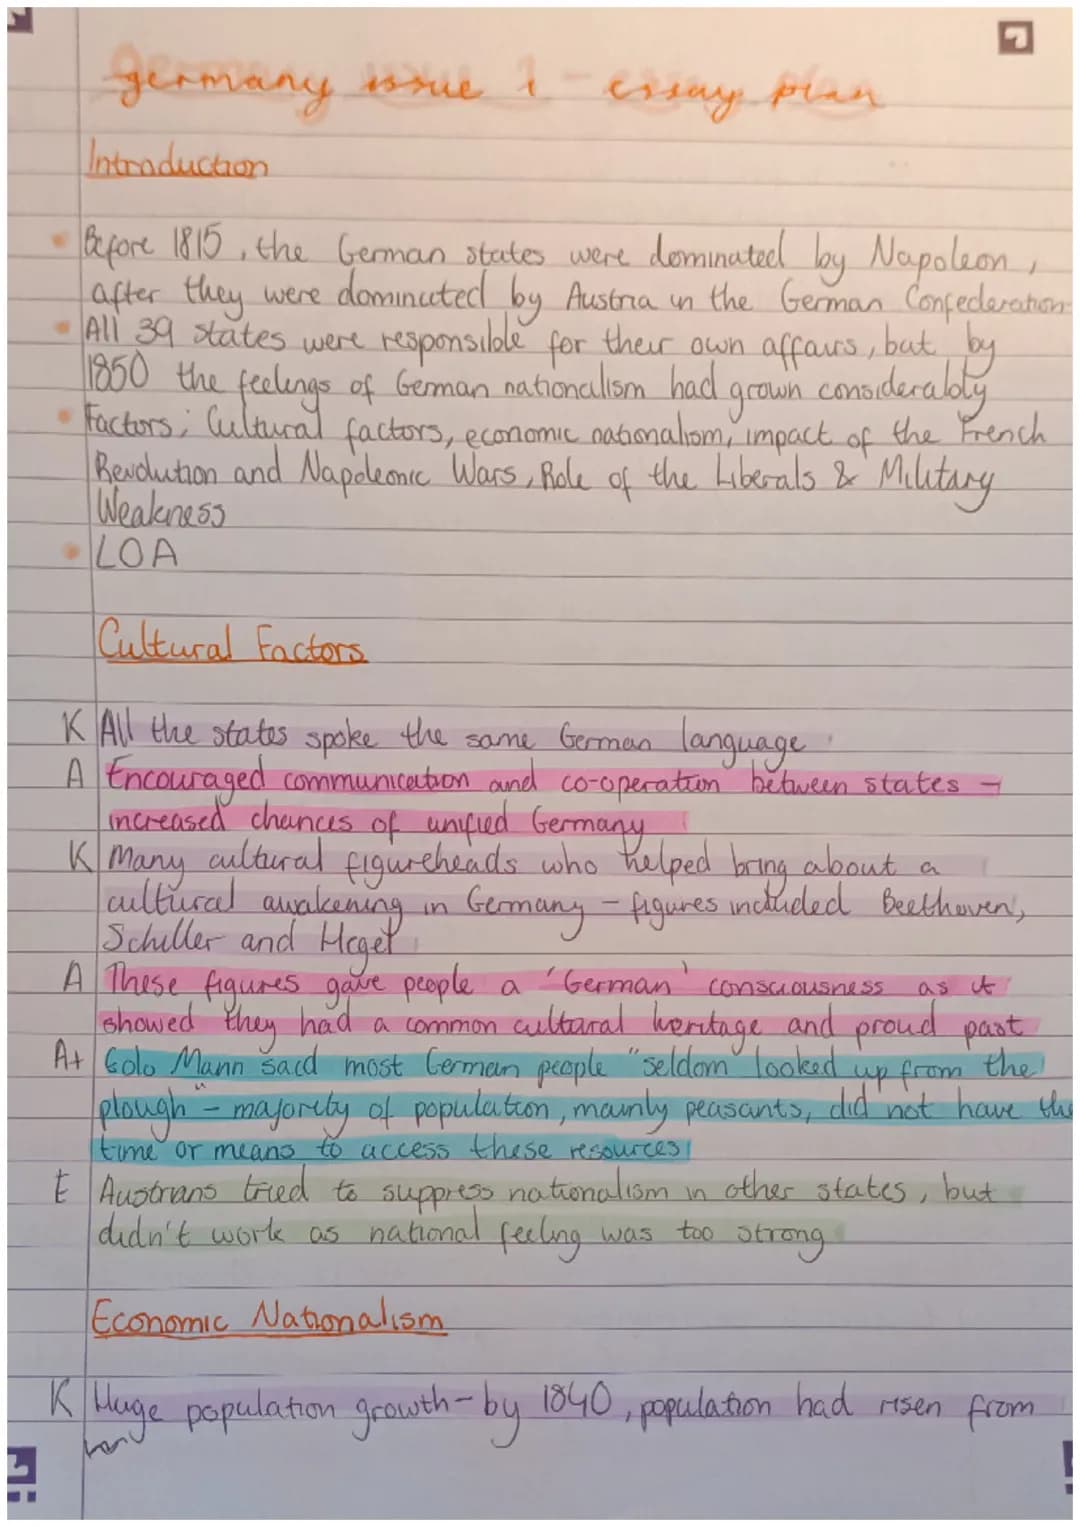 germany issue 1 - essay plan
Introduction
Before 1815, the German states were dominated by Napoleon,
after they were dominated by Austria in the German Confederation
All 39 states were responsible for their own affairs, but by
1850 the feelings of German nationalism had grown considerably
Factors; Cultural factors, economic nationalism, impact of the French
Revolution and Napoleonic Wars, Role of the Liberals & Military
Weakness
LOA
Cultural Factors
K All the states spoke the same German language
A Encouraged communication and co-operation between states -
increased chances of unified Germany
K Many cultural figureheads who helped bring about a
cultural awakening in Germany - figures included Beethoven,
Schiller and Hegel
A These figures gave people a 'German' consciousness as it
showed they had a common cultural heritage and proud past
A+ Golo Mann said most German people "seldom looked up from the
plough" - majority of population, mainly peasants, did not have the
time or means to access these resources
E Austrians tried to suppress nationalism in other states, but
didn't work as national feeling was too strong
Economic Nationalism
K Huge population growth - by 1840, population had risen from